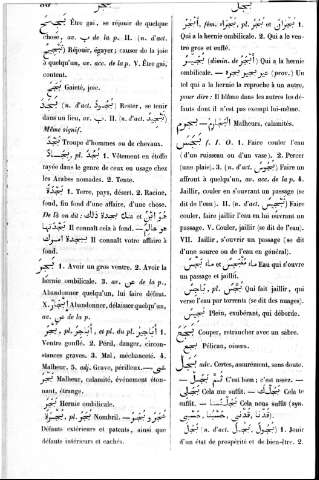 بَجَحَ Être gai, se réjouir de quelque
chose, av. بـ de la p. II. (n. d'act.
تَبْجِيحٌ) Réjouir, égayer; causer de la joie
à quelqu'un, av. acc. de la p. V. Être gai,
content.
Gaieté, joie.
بَجَدَ (n. d'act. بُجُودٌ) Rester, se tenir
dans un lieu, av. بـ. II. (n. d'act. تَبْجِيدٌ)
Même signif.
Troupe d'hommes ou de chevaux.
pl. بُجُدٌ 1. Vêtement en étoffe
rayée dans le genre de ceux en usage chez
les Arabes nomades. 2. Tente.
بَجْدَةٌ 1. Terre, pays, désert. 2. Racine,
fond, fin fond d'une affaire, d'une chose.
De là on dit: عنده بجدة ذلك
Il connaît cela à fond.
Il connaît votre affaire à
fond.
بَجِرَ 1. Avoir un gros ventre. 2. Avoir la
hernie ombilicale. 3. av. عن de la p.,
Abandonner quelqu'un, lui faire défaut.
X. Abandonner, délaisser quelqu'un,
av. عن de la p.
pl. et du pl. 1.
Ventre gonflé. 2. Péril, danger, circon-
stances graves. 3. Mal, méchanceté. 4.
Malheur. 5. adj. Grave, périlleux.
Malheur, calamité, événement éton-
nant, étrange.
Hernie ombilicale.
pl. Nombril.
Défauts extérieurs et patents, ainsi que
défauts intérieurs et cachés.
أَبْجَرُ, fém. بَجْرَاءُ, pl. بُجْرٌ et بُجْرَانٌ 1.
Qui a la hernie ombilicale. 2. Qui a le ven-
tre gros et enflé.
بُجَيْرٌ (dimin. de أَبْجَرُ) Qui a la hernie
ombilicale. — عير بجير بجره (prov.) Un
tel qui a la hernie la reproche à un autre,
pour dire: Il blâme dans les autres les dé-
fauts dont il n'est pas exempt lui-même.
Malheurs, calamités.
بَجَسَ f. I. O. 1. Faire couler l'eau
(d'un ruisseau ou d'un vase). 2. Percer
(une plaie). 3. (n. d'act. بَجْسٌ) Faire un
affront à quelqu'un, av. acc. de la p. 4.
Jaillir, couler en s'ouvrant un passage (se
dit de l'eau). II. (n. d'act. تَبْجِيسٌ) Faire
couler, faire jaillir l'eau en lui ouvrant un
passage. V. Couler, jaillir (se dit de l'eau).
VII. Jaillir, s'ouvrir un passage (se dit
d'une source ou de l'eau en général).
ماء Eau qui s'ouvre
un passage et jaillit.
pl. بُجَّسٌ Qui fait jaillir, qui
verse l'eau par torrents (se dit des nuages).
Plein, exubérant, qui déborde.
Couper, retrancher avec un sabre.
Pélican, oiseau.
بَجَلْ adv. Certes, assurément, sans doute.
— C'est bien; c'est assez. —
Cela me suffit. — Cela te
suffit. — Cela nous suffit (syn.
قَدْنَا, قَدْنِي, حَسْبُنَا, حَسْبِي).
بَجَلَ (n. d'act. بُجُولٌ, بَجْلٌ) 1. Jouir
d'un état de prospérité et de bien-être. 2.